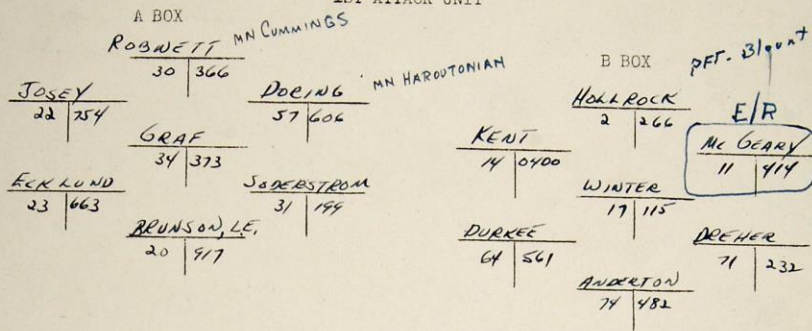 1ST ATTACK UNIT
A BOX
ROBNETT MN CUMMINGS
30 366
JOSEY
22 754
DOEING MN HAROUTONIAN
57 606
GRAF
34 373
ECKLUND
23 663
SODERSTROM
31 199
BRUNSON, L.E.
20 917
B BOX
PFT. Blount
HOLLROCK
2 266
E/R
KENT
14 0400
Mc GEARY
11 414
WINTER
17 115
DURKEE
64 561
DREHER
71 232
ANDERTON
74 482